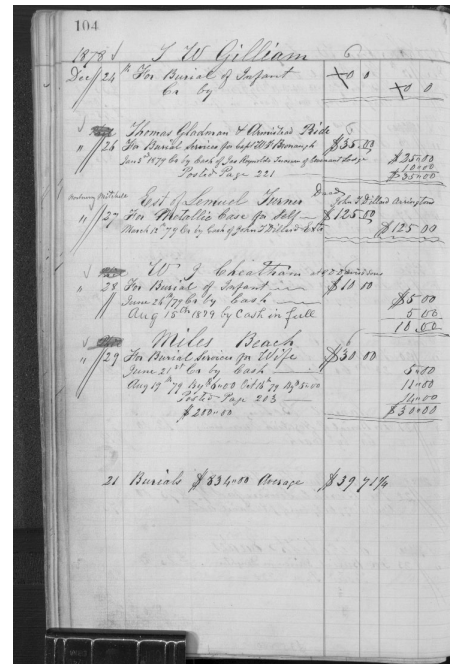 104
1878 J W Gilliam 6
Dec 24th For Burial of Infant X0 0
Cr by X0 0
Thomas Gladman & Armistead Pride 6
" 26 For Burial Services for Capt W Bonaugh $35.00
Jan 2d 1879 Cr by Cash of Jas Reynolds Treasurer of Lodge $25.00
10.00
Posted Page 221 $35.00
Est of Lemuel Turner Dead John T Dillard Arrington
" 27 For Metallic Case for Self $125.00
March 12th 79 Cr by Cash of John T Dillard Extr $125 00
W J Cheatham at
" 28 For Burial of Infant $10 00
June 26th 79 Cr by Cash $5 00
Aug 15th 1879 by Cash in full 5 00
10.00
Miles Beach 6
" 29 For Burial Services for Wife $30 00
June 21st Cr by Cash 5.00
Aug 19th 79 By $6.00 Oct 16th 79 By $5.00 11.00
Posted Page 203 14.00
$200.00 $30.00
21 Burials $834.00 Average $39 71¼